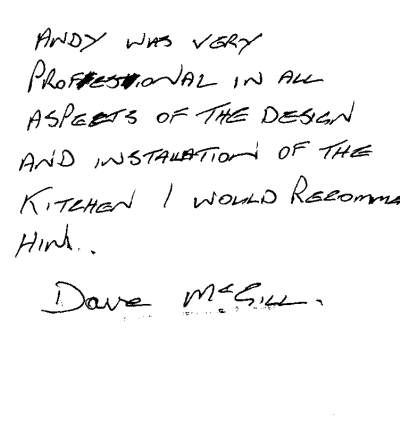 ANDY WAS VERY
PROFESSIONAL IN ALL
ASPECTS OF THE DESIGN
AND INSTALLATION OF THE
KITCHEN I WOULD RECOMME
HIM..
Dave McGILL.